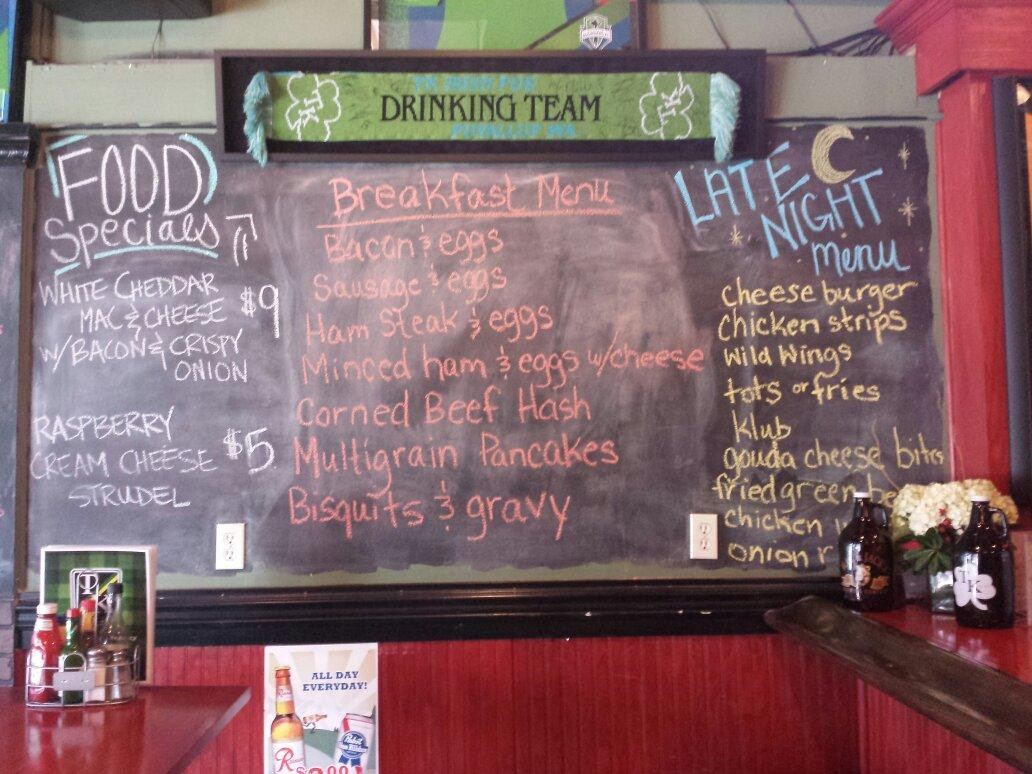 TK IRISH PUB
DRINKING TEAM
PUYALLUP WA
FOOD
Specials
WHITE CHEDDAR
MAC & CHEESE $9
W/BACON & CRISPY
ONION
RASPBERRY
CREAM CHEESE $5
STRUDEL
Breakfast Menu
Bacon & eggs
Sausage & eggs
Ham Steak & eggs
Minced ham & eggs w/cheese
Corned Beef Hash
Multigrain Pancakes
Bisquits & gravy
LATE
NIGHT
menu
cheese burger
Chicken strips
Wild Wings
tots or fries
klub
gouda cheese bites
fried green be
chicken
onion r
ALL DAY
EVERYDAY!
R
Pabst
TK